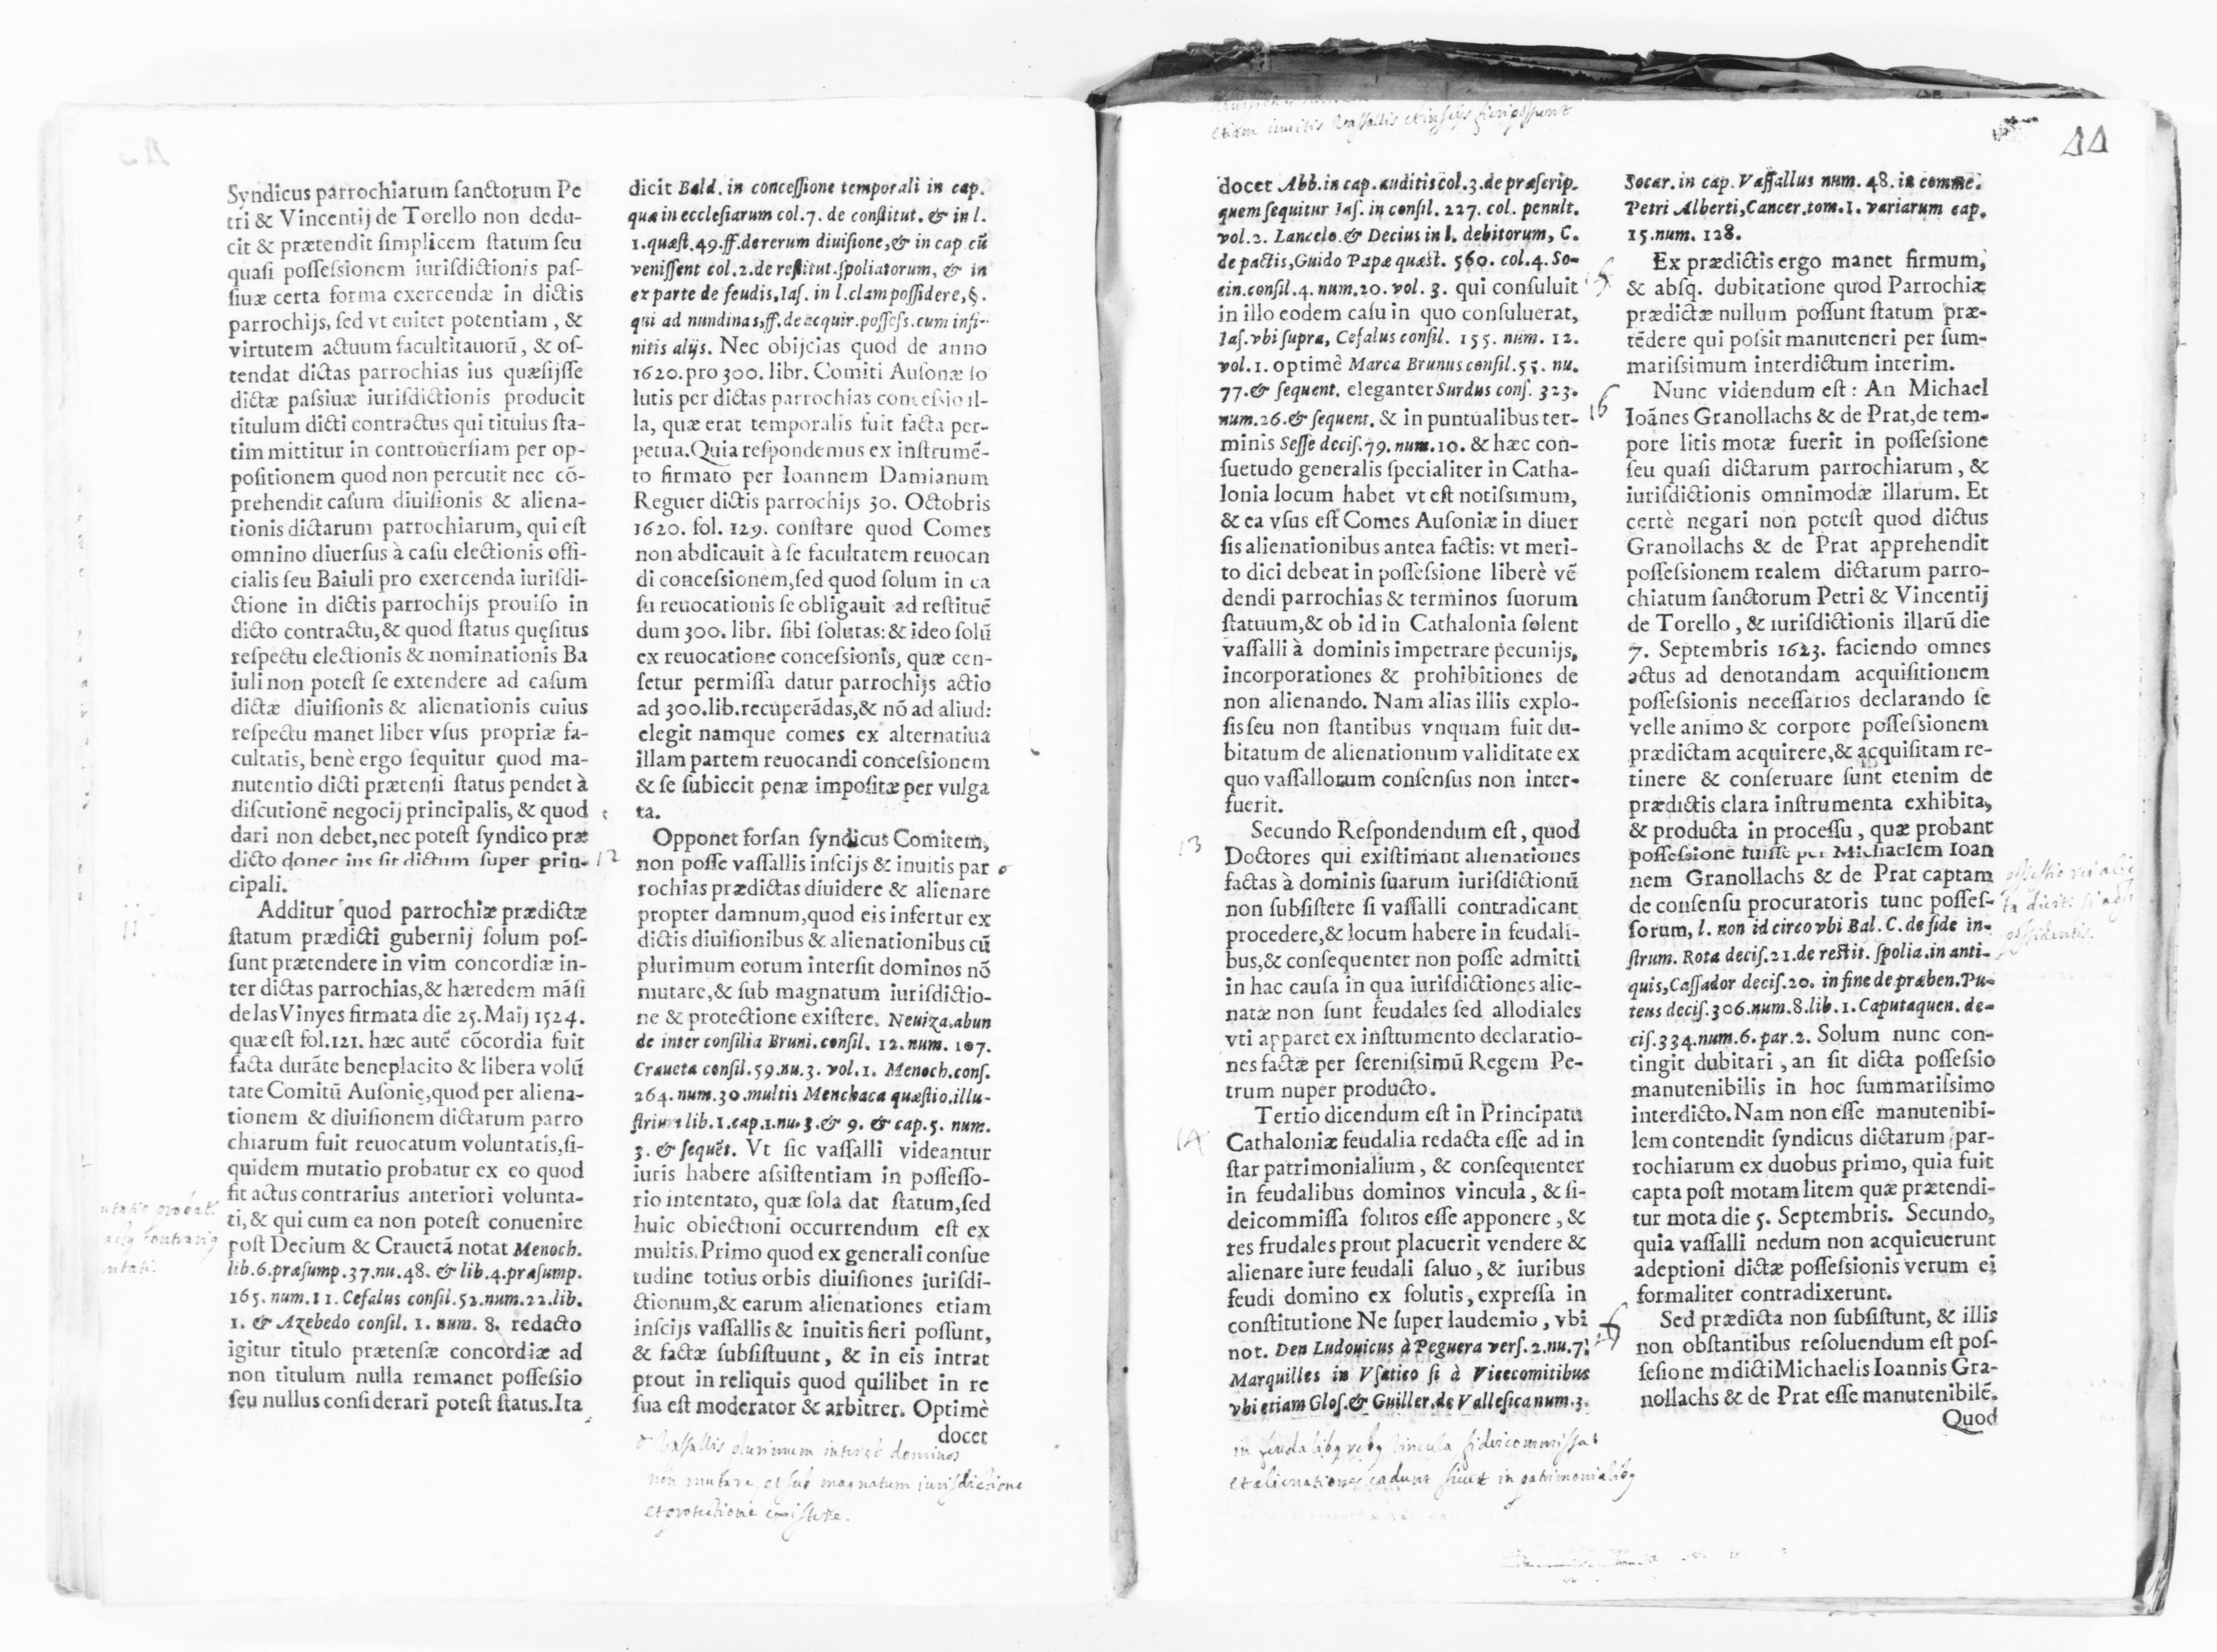 Syndicus parrochiarum ſanctorum Pe
tri & Vincentij de Torello non dedu-
cit & prætendit ſimplicem ſtatum ſeu
quaſi poſſeſsionem iuriſdictionis paſ-
ſiuæ certa forma exercendæ in dictis
parrochijs, ſed vt euitet potentiam, &
virtutem actuum facultitauorū, & oſ-
tendat dictas parrochias ius quæſijſſe
dictæ paſsiuæ iuriſdictionis producit
titulum dicti contractus qui titulus ſta-
tim mittitur in controuerſiam per op-
poſitionem quod non percutit nec cō-
prehendit caſum diuiſionis & aliena-
tionis dictarum parrochiarum, qui eſt
omnino diuerſus à caſu electionis offi-
cialis ſeu Baiuli pro exercenda iuriſdi-
ctione in dictis parrochijs prouiſo in
dicto contractu, & quod ſtatus quęſitus
reſpectu electionis & nominationis Ba
iuli non poteſt ſe extendere ad caſum
dictæ diuiſionis & alienationis cuius
reſpectu manet liber vſus propriæ fa-
cultatis, benè ergo ſequitur quod ma-
nutentio dicti prætenſi ſtatus pendet à
diſcutionē negocij principalis, & quod
dari non debet, nec poteſt ſyndico præ
dicto donec ius ſit dictum ſuper prin-
cipali.
11
Additur quod parrochiæ prædictæ
ſtatum prædicti gubernij ſolum poſ-
ſunt prætendere in vim concordiæ in-
ter dictas parrochias, & hæredem māſi
de las Vinyes firmata die 25. Maij 1524.
quæ eſt fol. 121. hæc autē cōcordia fuit
facta durāte beneplacito & libera volū
tate Comitū Auſonię, quod per aliena-
tionem & diuiſionem dictarum parro
chiarum fuit reuocatum voluntatis, ſi-
quidem mutatio probatur ex eo quod
fit actus contrarius anteriori volunta-
ti, & qui cum ea non poteſt conuenire
poſt Decium & Crauetā notat Menoch.
lib. 6. præſump. 37. nu. 48. & lib. 4. præſump.
165. num. 11. Cefalus conſil. 52. num. 22. lib.
1. & Azebedo conſil. 1. num. 8. redacto
igitur titulo prætenſæ concordiæ ad
non titulum nulla remanet poſſeſsio
ſeu nullus conſiderari poteſt ſtatus. Ita
dicit Bald. in conceſſione temporali in cap.
quæ in eccleſiarum col. 7. de conſtitut. & in l.
1. quæſt. 49. ff. de rerum diuiſione, & in cap cū
veniſſent col. 2. de reſtitut. ſpoliatorum, & in
ex parte de feudis, Iaſ. in l. clam poſſidere, §.
qui ad nundinas, ff. de acquir. poſſeſs. cum infi-
nitis alijs. Nec obijcias quod de anno
1620. pro 300. libr. Comiti Auſonæ ſo
lutis per dictas parrochias conceſsio il-
la, quæ erat temporalis fuit facta per-
petua. Quia reſpondemus ex inſtrumē-
to firmato per Ioannem Damianum
Reguer dictis parrochijs 30. Octobris
1620. fol. 129. conſtare quod Comes
non abdicauit à ſe facultatem reuocan
di conceſsionem, ſed quod ſolum in ca
ſu reuocationis ſe obligauit ad reſtituē
dum 300. libr. ſibi ſolutas: & ideo ſolū
ex reuocatione conceſsionis, quæ cen-
ſetur permiſſa datur parrochijs actio
ad 300. lib. recuperādas, & nō ad aliud:
elegit namque comes ex alternatiua
illam partem reuocandi conceſsionem
& ſe ſubiecit penæ impoſitæ per vulga
ta.
12
Opponet forſan ſyndicus Comitem,
non poſſe vaſſallis inſcijs & inuitis par
rochias prædictas diuidere & alienare
propter damnum, quod eis infertur ex
dictis diuiſionibus & alienationibus cū
plurimum eorum interſit dominos nō
mutare, & ſub magnatum iuriſdictio-
ne & protectione exiſtere. Neuiza. abun
de inter conſilia Bruni. conſil. 12. num. 107.
Craueta conſil. 59. nu. 3. vol. 1. Menoch. conſ.
264. num. 30. multis Menchaca quæſtio. illu-
ſtrium lib. 1. cap. 1. nu. 3. & 9. & cap. 5. num.
3. & ſequēt. Vt ſic vaſſalli videantur
iuris habere aſsiſtentiam in poſſeſſo-
rio intentato, quæ ſola dat ſtatum, ſed
huic obiectioni occurrendum eſt ex
multis. Primo quod ex generali conſue
tudine totius orbis diuiſiones iuriſdi-
ctionum, & earum alienationes etiam
inſcijs vaſſallis & inuitis fieri poſſunt,
& factæ ſubſiſtuunt, & in eis intrat
prout in reliquis quod quilibet in re
ſua eſt moderator & arbitrer. Optimè
docet
vaſſallis plurimum intereſt dominos
non mutare, et ſub magnatum iuriſdictione
et protectione exiſtere.
etiam inuitis vaſſallis et inſcijs fieri poſſunt
44
docet Abb. in cap. auditis col. 3. de præſcrip.
quem ſequitur Iaſ. in conſil. 227. col. penult.
vol. 2. Lancelo. & Decius in l. debitorum, C.
de pactis, Guido Papæ quæst. 560. col. 4. So-
cin. conſil. 4. num. 20. vol. 3. qui conſuluit
in illo eodem caſu in quo conſuluerat,
Iaſ. vbi ſupra, Cefalus conſil. 155. num. 12.
vol. 1. optimè Marca Brunus conſil. 55. nu.
77. & ſequent. eleganter Surdus conſ. 323.
num. 26. & ſequent. & in puntualibus ter-
minis Seſſe deciſ. 79. num. 10. & hæc con-
ſuetudo generalis ſpecialiter in Catha-
lonia locum habet vt eſt notiſsimum,
& ea vſus eſt Comes Auſoniæ in diuer
ſis alienationibus antea factis: vt meri-
to dici debeat in poſſeſsione liberè vē
dendi parrochias & terminos ſuorum
ſtatuum, & ob id in Cathalonia ſolent
vaſſalli à dominis impetrare pecunijs,
incorporationes & prohibitiones de
non alienando. Nam alias illis explo-
ſis ſeu non ſtantibus vnquam fuit du-
bitatum de alienationum validitate ex
quo vaſſallorum conſenſus non inter-
fuerit.
13
Secundo Reſpondendum eſt, quod
Doctores qui exiſtimant alienationes
factas à dominis ſuarum iuriſdictionū
non ſubſiſtere ſi vaſſalli contradicant
procedere, & locum habere in feudali-
bus, & conſequenter non poſſe admitti
in hac cauſa in qua iuriſdictiones alie-
natæ non ſunt feudales ſed allodiales
vti apparet ex inſtrumento declaratio-
nes factæ per ſereniſsimū Regem Pe-
trum nuper producto.
14
Tertio dicendum eſt in Principatu
Cathaloniæ feudalia redacta eſſe ad in
ſtar patrimonialium, & conſequenter
in feudalibus dominos vincula, & fi-
deicommiſſa ſolitos eſſe apponere, &
res frudales prout placuerit vendere &
alienare iure feudali ſaluo, & iuribus
feudi domino ex ſolutis, expreſſa in
conſtitutione Ne ſuper laudemio, vbi
not. Den Ludouicus à Peguera verſ. 2. nu. 7.
Marquilles in Vſatico ſi à Vicecomitibus
vbi etiam Gloſ. & Guiller. de Valleſica num. 3.
et alienationes cadunt ſicut in patrimonialibꝯ
Socar. in cap. Vaſſallus num. 48. in comme.
Petri Alberti, Cancer. tom. 1. variarum cap.
15. num. 128.
15
Ex prædictis ergo manet firmum,
& abſq. dubitatione quod Parrochiæ
prædictæ nullum poſſunt ſtatum præ-
tēdere qui poſsit manuteneri per ſum-
mariſsimum interdictum interim.
16
Nunc videndum eſt: An Michael
Ioānes Granollachs & de Prat, de tem-
pore litis motæ fuerit in poſſeſsione
ſeu quaſi dictarum parrochiarum, &
iuriſdictionis omnimodæ illarum. Et
certè negari non poteſt quod dictus
Granollachs & de Prat apprehendit
poſſeſsionem realem dictarum parro-
chiatum ſanctorum Petri & Vincentij
de Torello, & iuriſdictionis illarū die
7. Septembris 1623. faciendo omnes
actus ad denotandam acquiſitionem
poſſeſsionis neceſſarios declarando ſe
velle animo & corpore poſſeſsionem
prædictam acquirere, & acquiſitam re-
tinere & conſeruare ſunt etenim de
prædictis clara inſtrumenta exhibita,
& producta in proceſſu, quæ probant
poſſeſsionē fuiſſe per Michaelem Ioan
nem Granollachs & de Prat captam
de conſenſu procuratoris tunc poſſeſ-
ſorum, l. non id circo vbi Bal. C. de fide in-
ſtrum. Rota deciſ. 21. de reſtit. ſpolia. in anti-
quis, Caſſador deciſ. 20. in fine de præben. Pu-
teus deciſ. 306. num. 8. lib. 1. Caputaquen. de-
ciſ. 334. num. 6. par. 2. Solum nunc con-
tingit dubitari, an ſit dicta poſſeſsio
manutenibilis in hoc ſummariſsimo
interdicto. Nam non eſſe manutenibi-
lem contendit ſyndicus dictarum par-
rochiarum ex duobus primo, quia fuit
capta poſt motam litem quæ prætendi-
tur mota die 5. Septembris. Secundo,
quia vaſſalli nedum non acquieuerunt
adeptioni dictæ poſſeſsionis verum ei
formaliter contradixerunt.
Sed prædicta non ſubſiſtunt, & illis
non obſtantibus reſoluendum eſt poſ-
ſeſione m dicti Michaelis Ioannis Gra-
nollachs & de Prat eſſe manutenibilē.
Quod